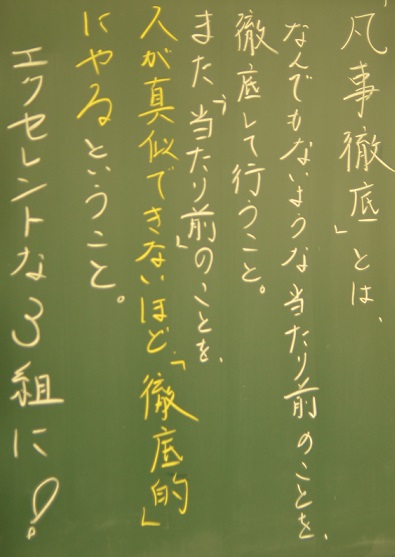 「凡事徹底」とは、
なんでもないような当たり前のことを、
徹底して行うこと。
また「当たり前」のことを、
人が真似できないほど「徹底的」
にやるということ。
エクセレントな3組に!